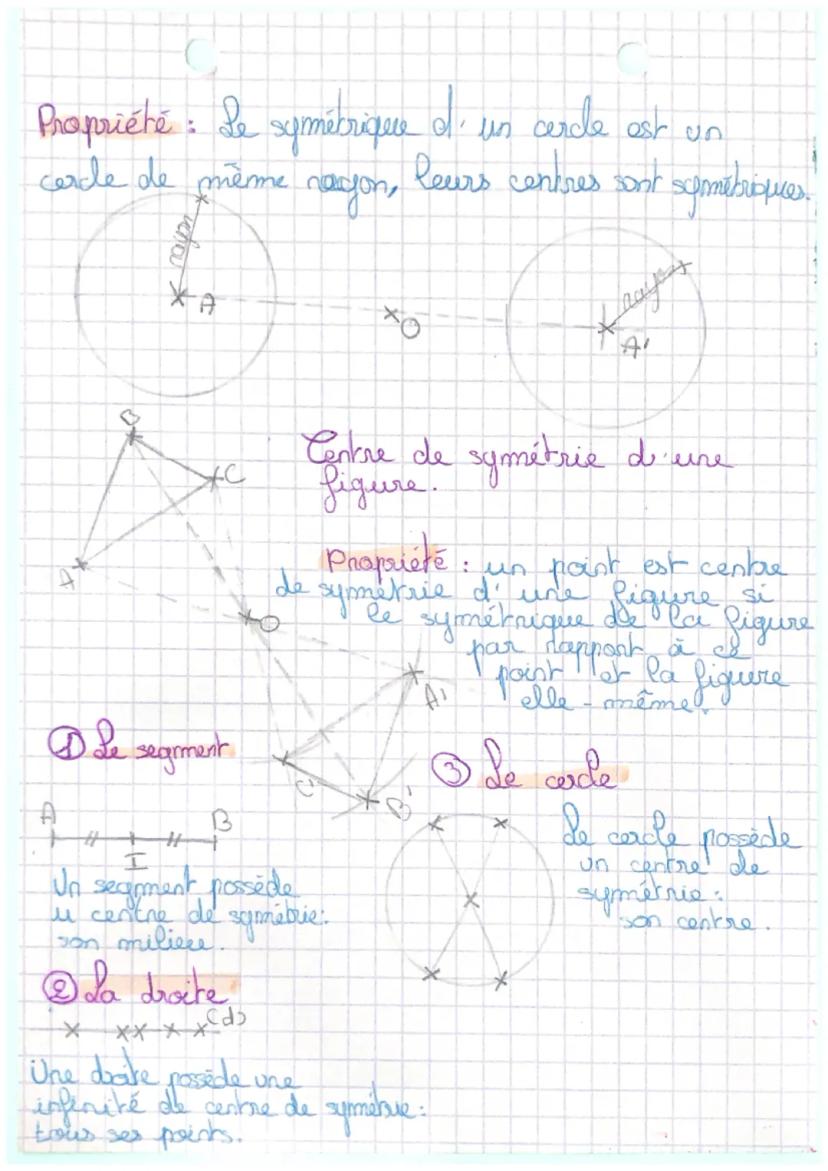 Propriété : Le symétrique d'un cercle est un
cercle de même rayon, leurs centres sont symétriques.
rayon
A
O
rayon
A'
B
C
A
O
A'
C'
B'
Centre de symétrie d'une
figure.
Propriété : un point est centre
de symétrie d'une figure si
le symétrique de la figure
par rapport à ce
point et la figure
elle-même.
① Le segment
A
B
I
Un segment possède
u centre de symétrie:
son milieu.
② La droite
(d)
Une droite possède une
infinité de centre de symétrie:
tous ses points.
③ Le cercle
Le cercle possède
un centre de
symétrie:
son centre.